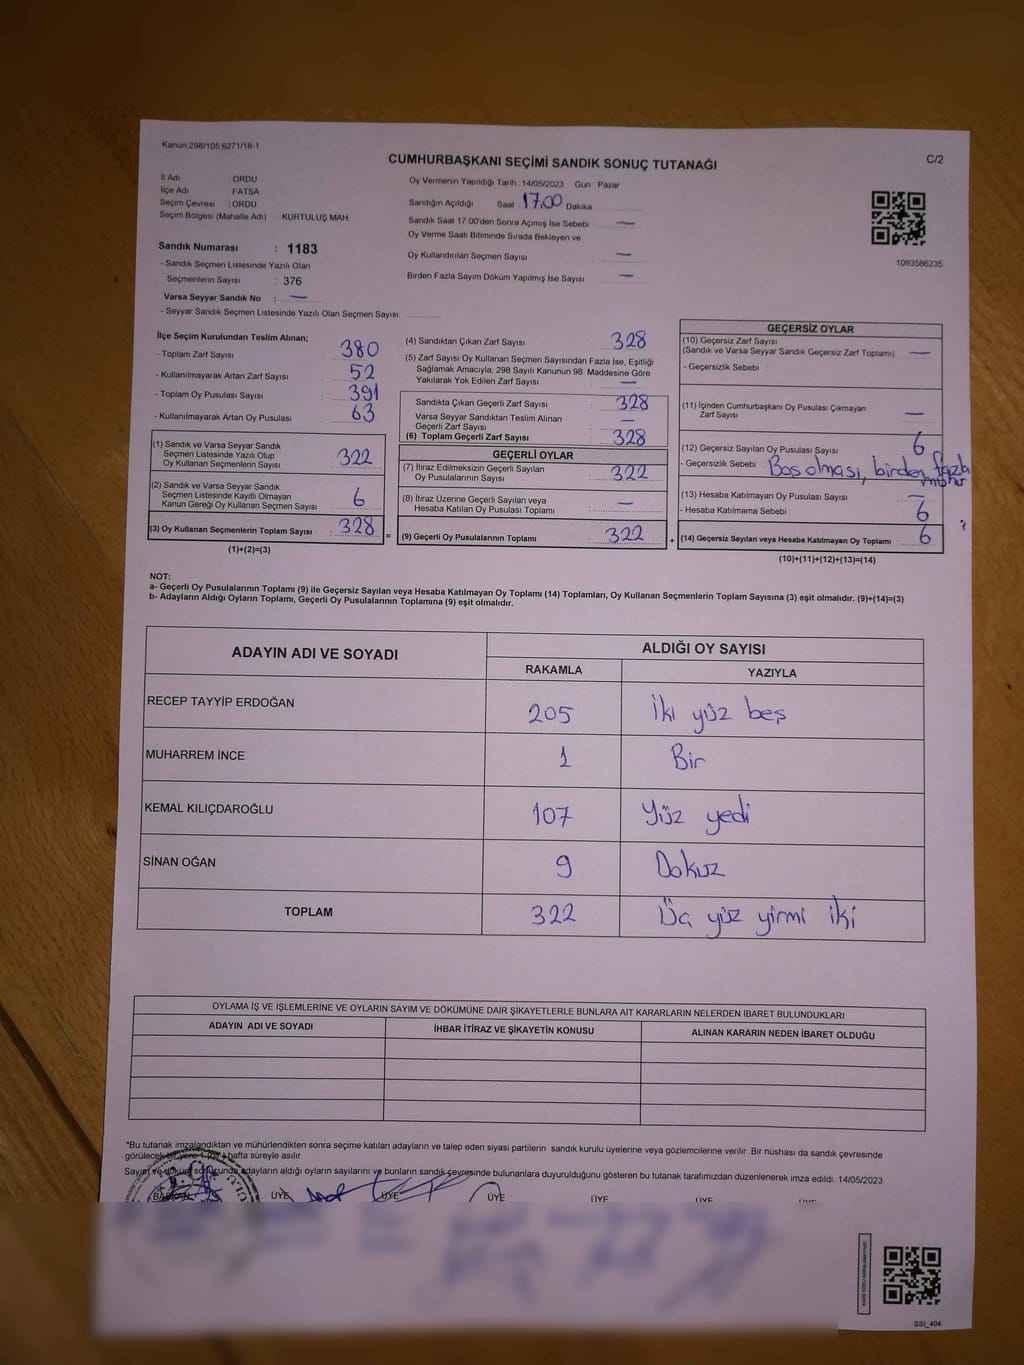 Kanun:298/105;6271/18-1
C/2
CUMHURBAŞKANI SEÇİMİ SANDIK SONUÇ TUTANAĞI
İl Adı ORDU
İlçe Adı FATSA
Seçim Çevresi : ORDU
Seçim Bölgesi (Mahalle Adı) : KURTULUŞ MAH
Sandık Numarası : 1183
- Sandık Seçmen Listesinde Yazılı Olan
Seçmenlerin Sayısı : 376
Varsa Seyyar Sandık No : —
- Seyyar Sandık Seçmen Listesinde Yazılı Olan Seçmen Sayısı:
Oy Vermenin Yapıldığı Tarih : 14/05/2023 Gün Pazar
Sandığın Açıldığı Saat 17.00 Dakika
Sandık Saat 17 00'den Sonra Açımış İse Sebebi —
Oy Verme Saati Bitiminde Sırada Bekleyen ve
Oy Kullandırılan Seçmen Sayısı —
Birden Fazla Sayım Döküm Yapılmış İse Sayısı —
1093586235
İlçe Seçim Kurulundan Teslim Alınan;
- Toplam Zarf Sayısı : 380
- Kullanılmayarak Artan Zarf Sayısı : 52
- Toplam Oy Pusulası Sayısı : 391
- Kullanılmayarak Artan Oy Pusulası : 63
(1) Sandık ve Varsa Seyyar Sandık
Seçmen Listesinde Yazılı Olup
Oy Kullanan Seçmenlerin Sayısı : 322
(2) Sandık ve Varsa Seyyar Sandık
Seçmen Listesinde Kayıtlı Olmayan
Kanun Gereği Oy Kullanan Seçmen Sayısı : 6
(3) Oy Kullanan Seçmenlerin Toplam Sayısı : 328
(1)+(2)=(3)
=
(4) Sandıktan Çıkan Zarf Sayısı : 328
(5) Zarf Sayısı Oy Kullanan Seçmen Sayısından Fazla İse, Eşitliği
Sağlamak Amacıyla, 298 Sayılı Kanunun 98. Maddesine Göre
Yakılarak Yok Edilen Zarf Sayısı : —
Sandıkta Çıkan Geçerli Zarf Sayısı : 328
Varsa Seyyar Sandıktan Teslim Alınan
Geçerli Zarf Sayısı : —
(6) Toplam Geçerli Zarf Sayısı : 328
GEÇERLİ OYLAR
(7) İtiraz Edilmeksizin Geçerli Sayılan
Oy Pusulalarının Sayısı : 322
(8) İtiraz Üzerine Geçerli Sayılan veya
Hesaba Katılan Oy Pusulası Toplamı : —
(9) Geçerli Oy Pusulalarının Toplamı : 322
+
GEÇERSİZ OYLAR
(10) Geçersiz Zarf Sayısı
(Sandık ve Varsa Seyyar Sandık Geçersiz Zarf Toplamı) : —
- Geçersizlik Sebebi :
(11) İçinden Cumhurbaşkanı Oy Pusulası Çıkmayan
Zarf Sayısı : —
(12) Geçersiz Sayılan Oy Pusulası Sayısı : 6
- Geçersizlik Sebebi : Boş olması, birden fazla
mühür
(13) Hesaba Katılmayan Oy Pusulası Sayısı : —
- Hesaba Katılmama Sebebi : 6
(14) Geçersiz Sayılan veya Hesaba Katılmayan Oy Toplamı : 6
(10)+(11)+(12)+(13)=(14)
NOT:
a- Geçerli Oy Pusulalarının Toplamı (9) ile Geçersiz Sayılan veya Hesaba Katılmayan Oy Toplamı (14) Toplamları, Oy Kullanan Seçmenlerin Toplam Sayısına (3) eşit olmalıdır. (9)+(14)=(3)
b- Adayların Aldığı Oyların Toplamı, Geçerli Oy Pusulalarının Toplamına (9) eşit olmalıdır.
ADAYIN ADI VE SOYADI
ALDIĞI OY SAYISI
RAKAMLA YAZIYLA
RECEP TAYYİP ERDOĞAN 205 İki yüz beş
MUHARREM İNCE 1 Bir
KEMAL KILIÇDAROĞLU 107 Yüz yedi
SİNAN OĞAN 9 Dokuz
TOPLAM 322 Üç yüz yirmi iki
OYLAMA İŞ VE İŞLEMLERİNE VE OYLARIN SAYIM VE DÖKÜMÜNE DAİR ŞİKAYETLERLE BUNLARA AİT KARARLARIN NELERDEN İBARET BULUNDUKLARI
ADAYIN ADI VE SOYADI İHBAR İTİRAZ VE ŞİKAYETİN KONUSU ALINAN KARARIN NEDEN İBARET OLDUĞU
*Bu tutanak imzalandıktan ve mühürlendikten sonra seçime katılan adayların ve talep eden siyasi partilerin sandık kurulu üyelerine veya gözlemcilerine verilir. Bir nüshası da sandık çevresinde
görülecek bir yere 1 hafta süreyle asılır.
Sayım ve döküm sonucunda adayların aldığı oyların sayılarını ve bunların sandık çevresinde bulunanlara duyurulduğunu gösteren bu tutanak tarafımızdan düzenlenerek imza edildi. 14/05/2023
BAŞKAN ÜYE ÜYE ÜYE ÜYE ÜYE ÜYE
SSİ_404